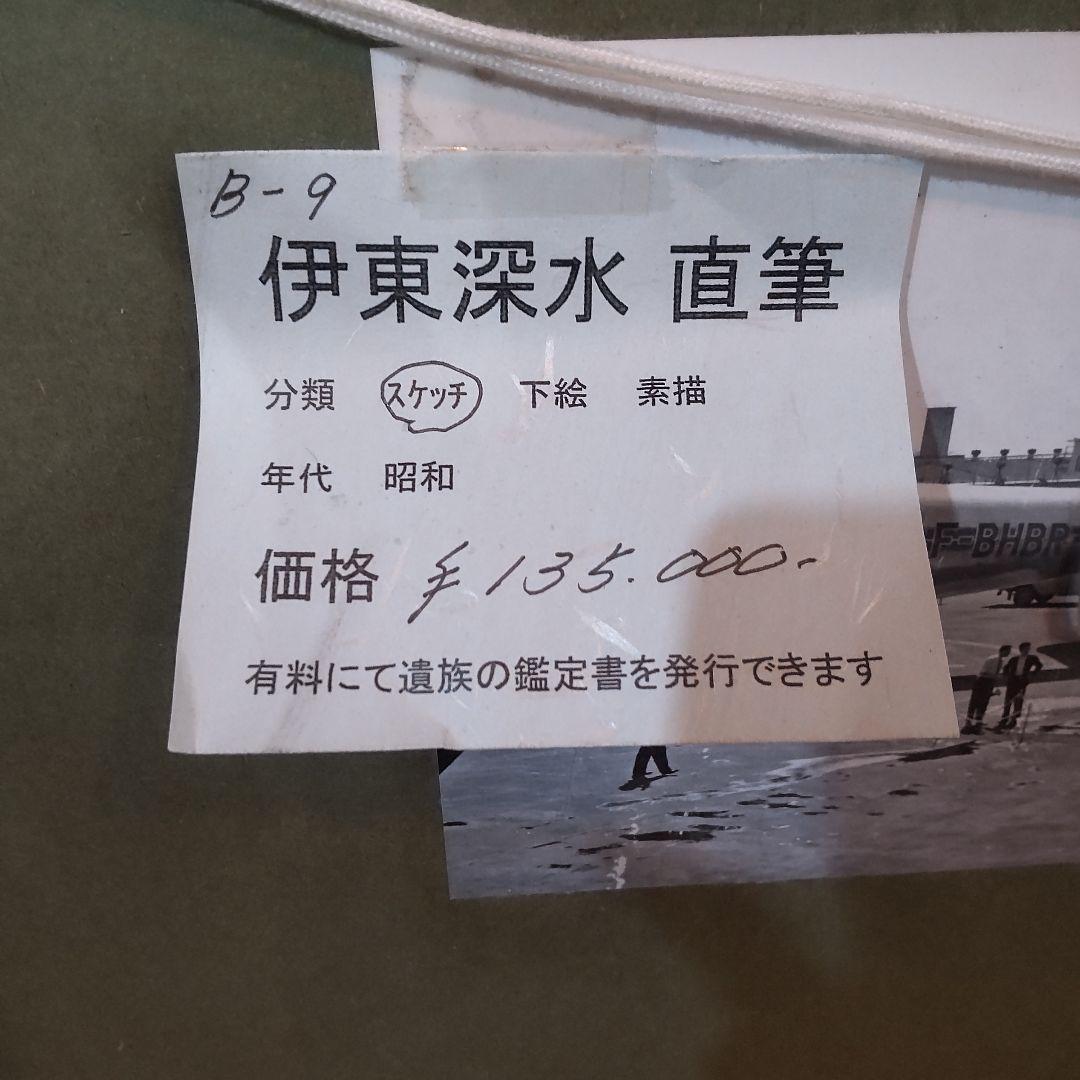 B-9
伊東深水 直筆
分類 スケッチ 下絵 素描
年代 昭和
価格 ¥135.000-
有料にて遺族の鑑定書を発行できます
F-BHBR